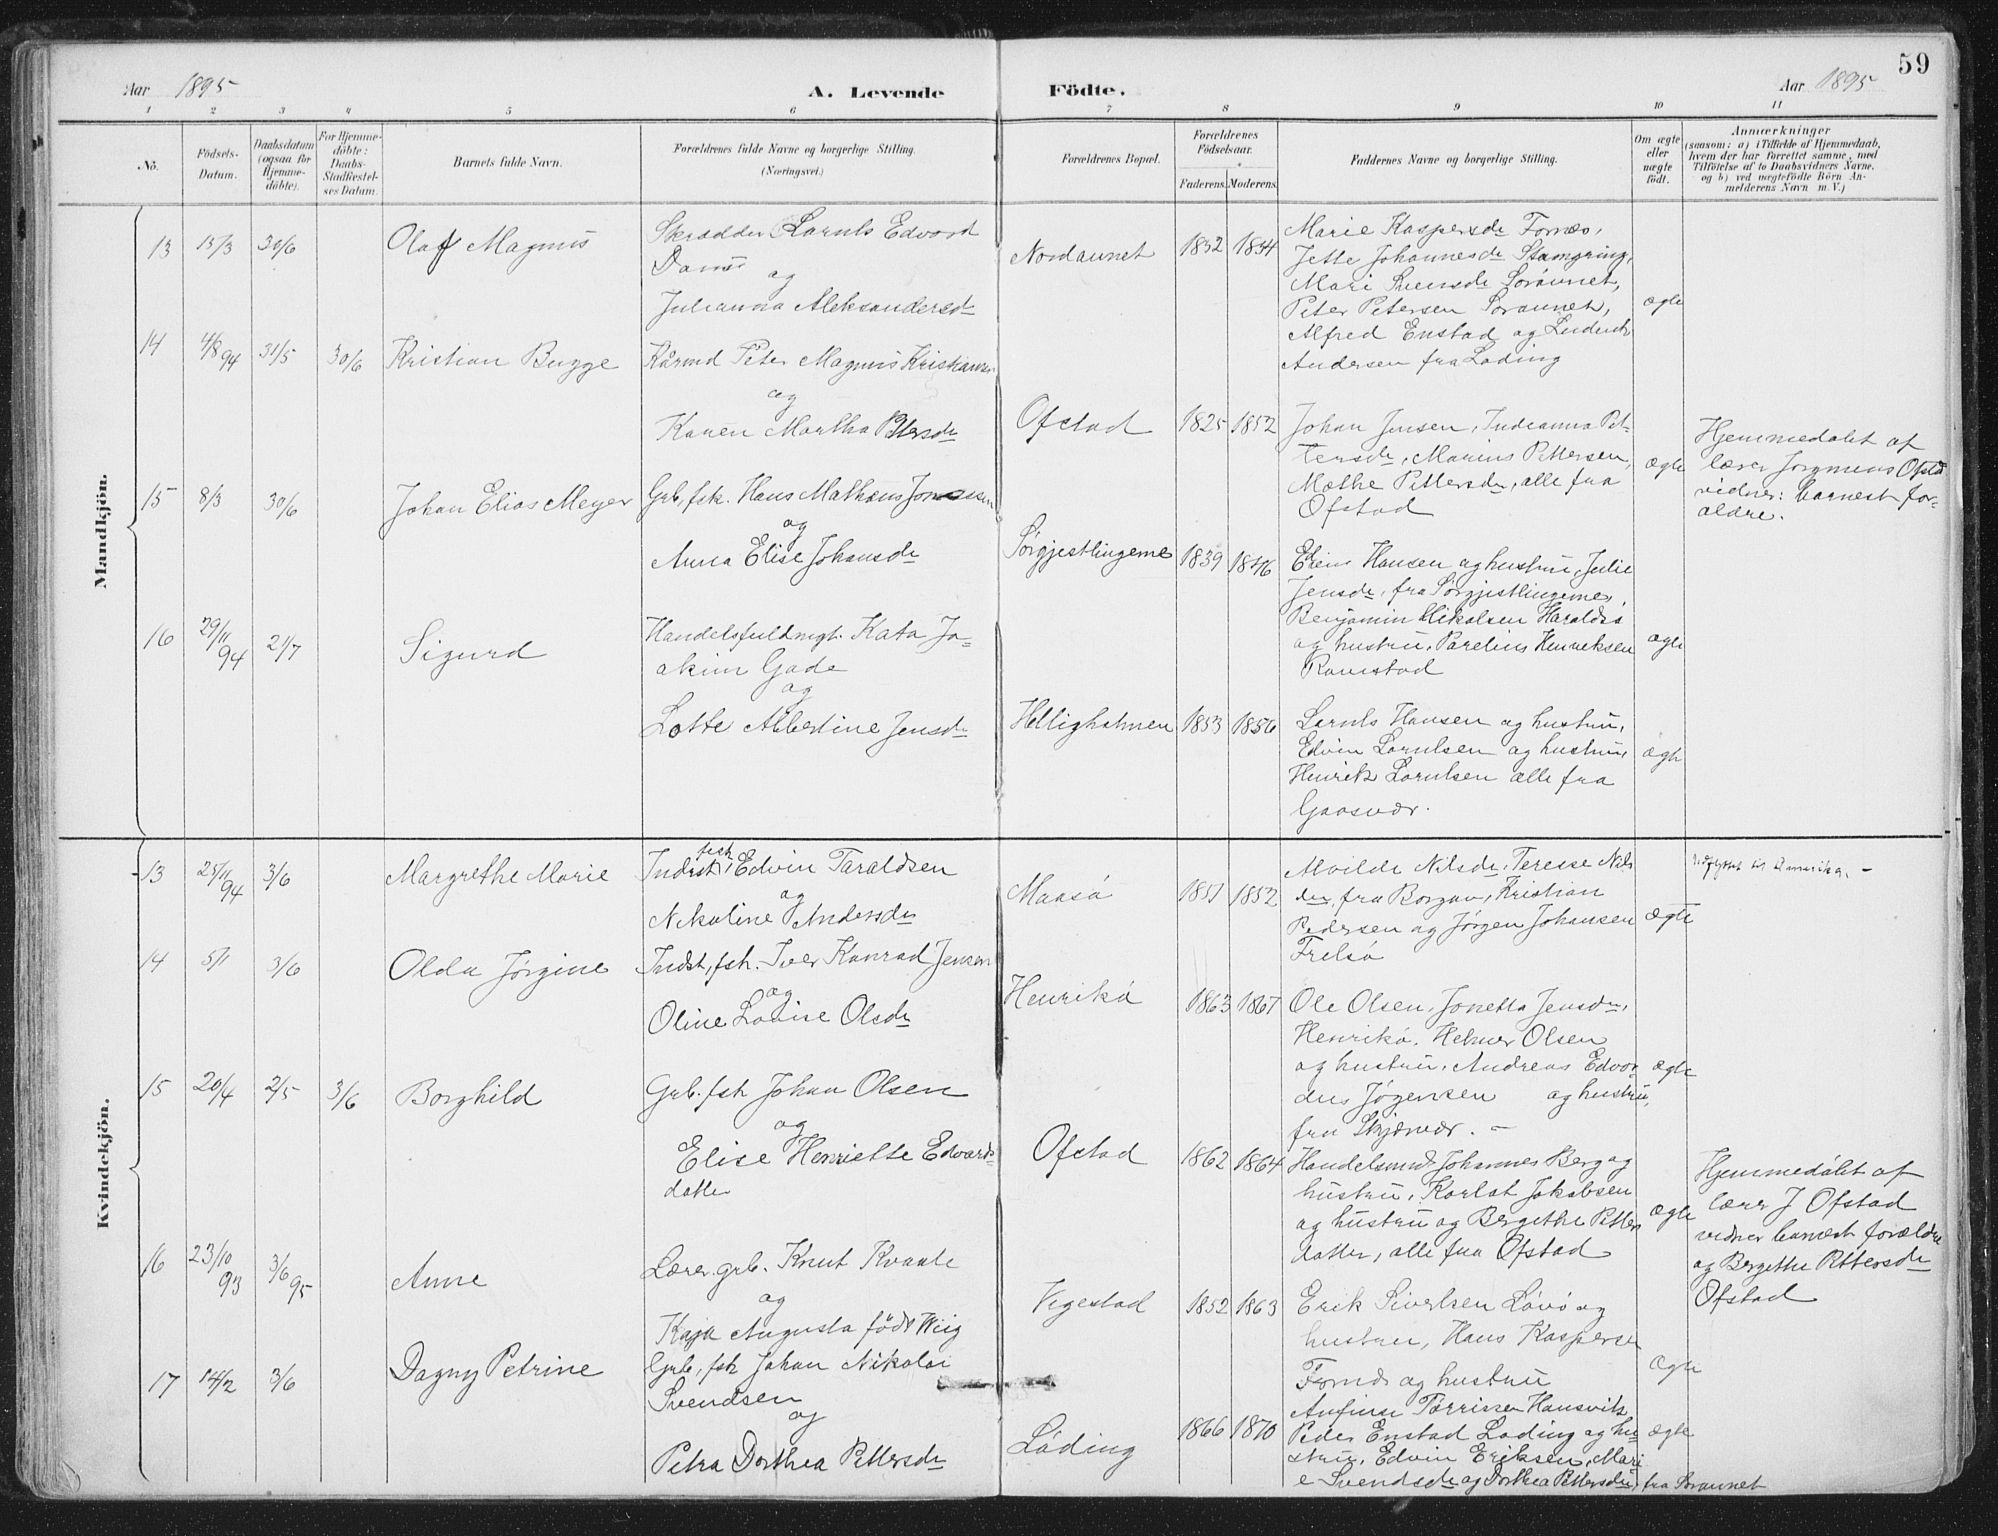 59
Aar 1895
A. Levende Födte.
Aar 1895
1 2 3 4 5 6 7 8 9 10 11
No.
Födsels-
Datum.
Daabsdatum
(ogsaa for
Hjemme-
döbte).
For Hjemme-
döbte:
Daabs-
Stadfæstel-
ses Datum.
Barnets fulde Navn.
Forældrenes fulde Navne og borgerlige Stilling.
(Næringsvei.)
Forældrenes Bopæl.
Forældrenes
Födselsaar.
Faderens. Moderens.
Faddernes Navne og borgerlige Stilling.
Om ægte
eller
uægte
födt.
Anmærkninger
(saasom: a) i Tilfælde af Hjemmedaab,
hvem der har forrettet samme, med
Tilföielse af to Daabsvidners Navne.
og b) ved uægtefödte Börn An-
melderens Navn m. V.)
Mandkjön.
13 13/3 30/6 Olaf Magnus
Skrædder Lornts Edvard
og
Julianna Aleksandersdr
Nordaunet 1852 1854
Marie Kaspersdr Fornæs,
Jette Johannesdr
Mari Svensdr Söraunet,
Peter Petersen Soraunet,
Alfred Enstad og
Andersen fra Lading
ægte
14 4/8 94 31/5 30/6 Kristian Bugge
Kårmd Peter Magnus Kristiansen
og
Karen Martha Petersdr
Ofstad 1825 1852
Johan Jensen, Indianna Pet-
tersdr, Marius Pettersen,
Mathe Pittersdr, alle fra
Ofstad
ægte
Hjemmedøbt af
lærer Ofstd
vidner: barnest for-
ældre.
15 8/3 30/6 Johan Elias Meyer
Grb, fsk. Hans Mathæus
og
Anna Elise Johansdr
Sørgjestlingerne 1839 1846
Hansen og hustru, Julie
Jensdr, fra Sørgjestlingerne,
Benjamin Nikolsen
og hustru, Parelius Henriksen
Ramstad
ægte
16 29/11 94 21/7 Sigurd
Handelsfuldmgt. Kato Jo-
akim Gade
og
Lotte Albertine Jensdr
Helligholmen 1853 1856
Lornts Hansen og hustru,
Edvin Lorntsen og hustru,
Henrik Lorntsen alle fra
Gaasvær.
ægte
Kvindekjön.
13 25/11 94 3/6 Margrethe Marie
Indst fsk Edvin Taraldsen
og
Nikoline Andersdr
Maasö 1851 1852
Nilsdr, Terese Nils-
dr, fra Borgan, Kristian
Pedersen og Jørgen Johansen
Frelsö
ægte
Udflyttet til Amerika. –
14 5/1 3/6 Olda Jørgine
Indst, fsk. Iver Konrad Jensen
og
Oline Lovise Olsdr
Henrikö 1863 1867
Ole Olsen, Jonetta Jensdr,
Henrikö. Helmer Olsen
og hustru, Andreas Edvar-
dus Jøgensen og hustru,
fra Skjærvær. –
ægte
15 20/4 2/5 3/6 Borghild
Grb. fsk Johan Olsen
og
Elise Henriette Edvards
datter
Ofstad 1862 1864
Handelsmd Johannes Berg og
hustru, Jakobsen
og hustru og Bergethe Petters
datter, alle fra Ofstad
ægte
Hjemmedøbt af
lærer J Ofstad
vidner barnest forældre
og Bergethe Pettersdr
Ofstad
16 23/10 93 3/6 95 Anne
Lærer. grb. Knut Kvaale
og
Kaja Augusta født Wiig
Vegestad 1852 1863
Erik Sivertsen Løvø og
hustru, Hans Kaspersen
og hustru
ægte
17 14/2 3/6 Dagny Petrine
Grb, fsk Johan Nikolai
Svendsen
og
Petra Dorthea Pettersdr
Lading 1866 1870
Hansvik
Peder Enstad Lading og hu-
stru, Edvin Eriksen, Mari
e Svendsdr og Dorthea Pettersdr, fra Soraunet
ægte